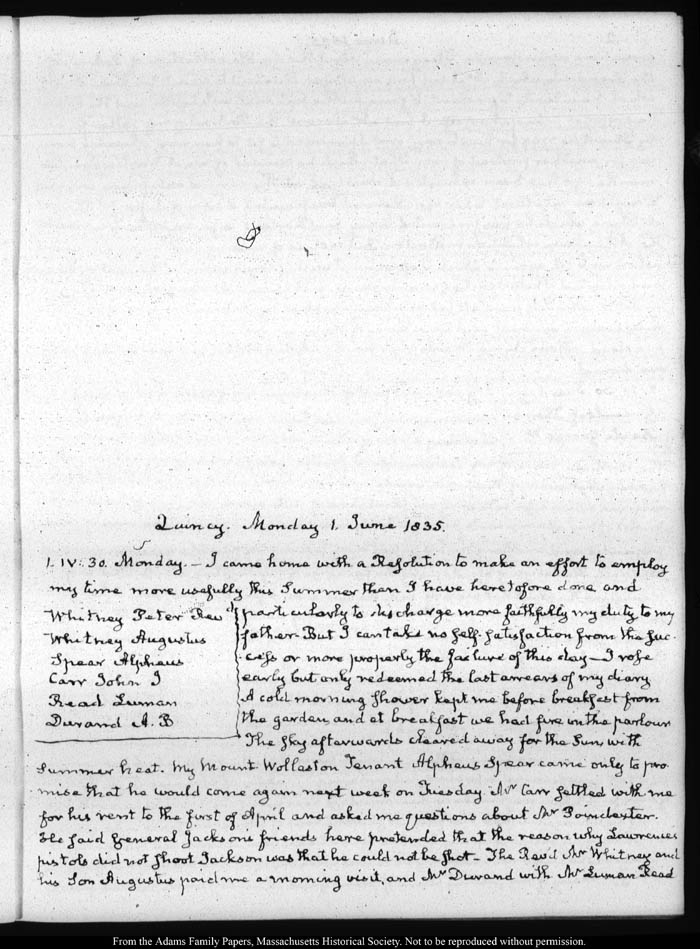 Quincy. Monday 1. June 1835.
1. IV: 30. Monday. – I came home with a Resolution to make an effort to employ
my time more usefully this Summer than I have heretofore done and
Whitney Peter Revd particularly to discharge more faithfully my duty to my
Whitney Augustus father. But I can take no self-satisfaction from the suc-
Spear Alpheus cess or more properly the failure of this day – I rose
Carr John J early but only redeemed the last arrears of my diary
Read Luman A cold morning shower kept me before breakfast from
Durand A. B the garden, and at breakfast we had fire in the parlour
The sky afterwards cleared away for the Sun, with
Summer heat. My Mount Wollaston Tenant Alpheus Spear came only to pro-
mise that he would come again next week on Tuesday Mr Carr settled with me
for his rent to the first of April and asked me questions about Mr Poindexter.
He said General Jackson's friends here pretended that the reason why Lawrence's
pistols did not shoot Jackson was that he could not be shot. The Revd Mr Whitney and
his Son Augustus paid me a morning visit, and Mr Durand with Mr Luman Read
From the Adams Family Papers, Massachusetts Historical Society. Not to be reproduced without permission.